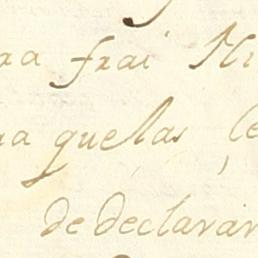 ra frai
ra quelas
de declarar